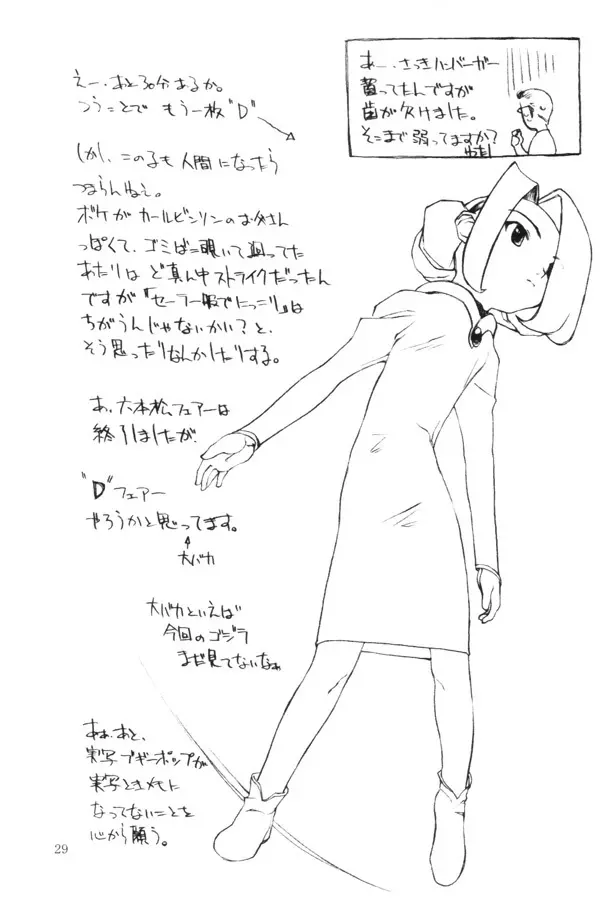 えー、あと30分あるか。
つうことで もう一枚"D"
しかし、この子も人間になったら
つまらんねぇ。
ボケがカールビンソンのお父さん
っぽくて、ゴミばこ覗いて回ってた
あたりは ど真ん中ストライクだったん
ですが「セーラー服でにっこり」は
ちがうんじゃないかい？と、
そう思ったりなんかしたりする。
あ、六本松フェアーは
終了しましたが、
"D"フェアー
やろうかと思ってます。
大バカ
大バカといえば
今回のゴジラ
まだ見てないなぁ
ああ、あと、
実写ブギーポップが
実写ときメモに
なってないことを
心から願う。
あー、さっきハンバーガー
食ってたんですが
歯が欠けました。
そこまで弱ってますか？
わたし
29